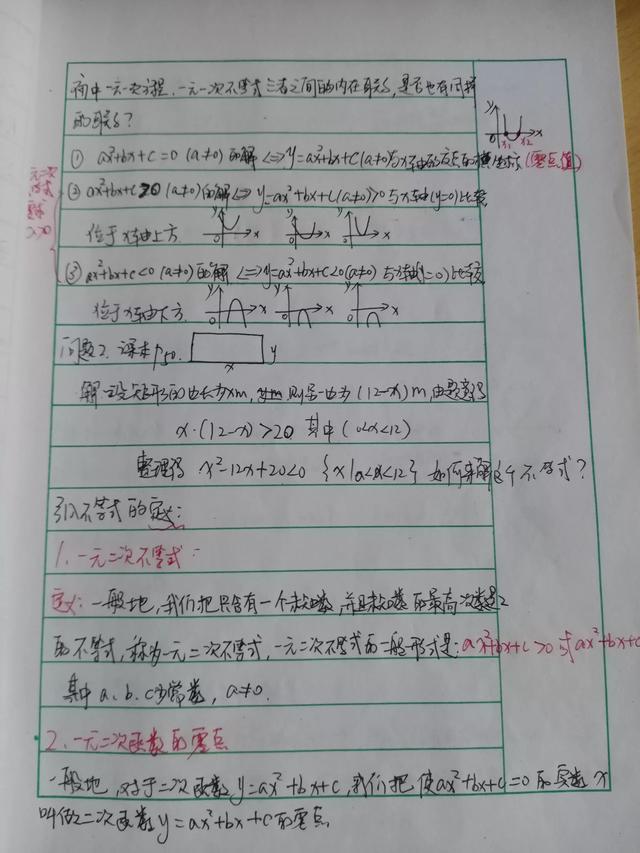 初中一元一次方程、一元一次不等式三者之间的内在联系,是否也有同样
的联系?
① ax²+bx+c=0 (a≠0) 的解 <=> y=ax²+bx+c (a≠0)与x轴的交点的横坐标 (零点值)
② ax²+bx+c>0 (a≠0)的解<=> y=ax²+bx+c(a≠0)>0 与x轴(y=0)比较
位于x轴上方
③ ax²+bx+c<0 (a≠0)的解 <=> y=ax²+bx+c<0(a≠0) 与x轴(y=0)比较
位于x轴下方
问题2、课本P50. x y
解:设矩形的边长为xm, 则另一边为(12-x)m,由题意得
x·(12-x)>20 其中(0<x<12)
整理得 x²-12x+20<0 {x|0<x<12} 如何求解这个不等式?
引入不等式的定义:
1、一元二次不等式:
定义:一般地,我们把只含有一个未知数,并且未知数的最高次数是2
的不等式,称为一元二次不等式,一元二次不等式的一般形式是:ax²+bx+c>0 或ax²+bx+c
其中a、b、c为常数,a≠0.
2、一元二次函数的零点
一般地,对于二次函数y=ax²+bx+c,我们把使ax²+bx+c=0的实数x
叫做二次函数y=ax²+bx+c的零点